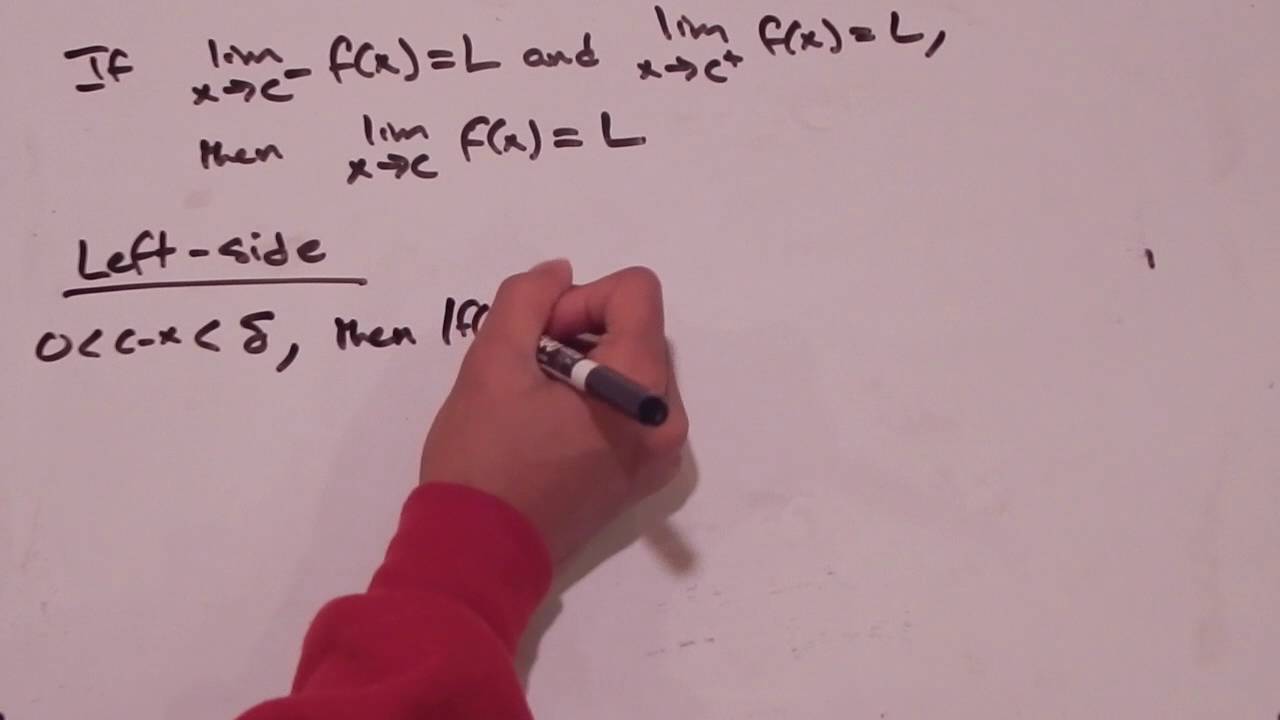 If lim x→c⁻ f(x) = L and lim x→c⁺ f(x) = L,
then lim x→c f(x) = L
Left-side
0 < c-x < δ, then |f(